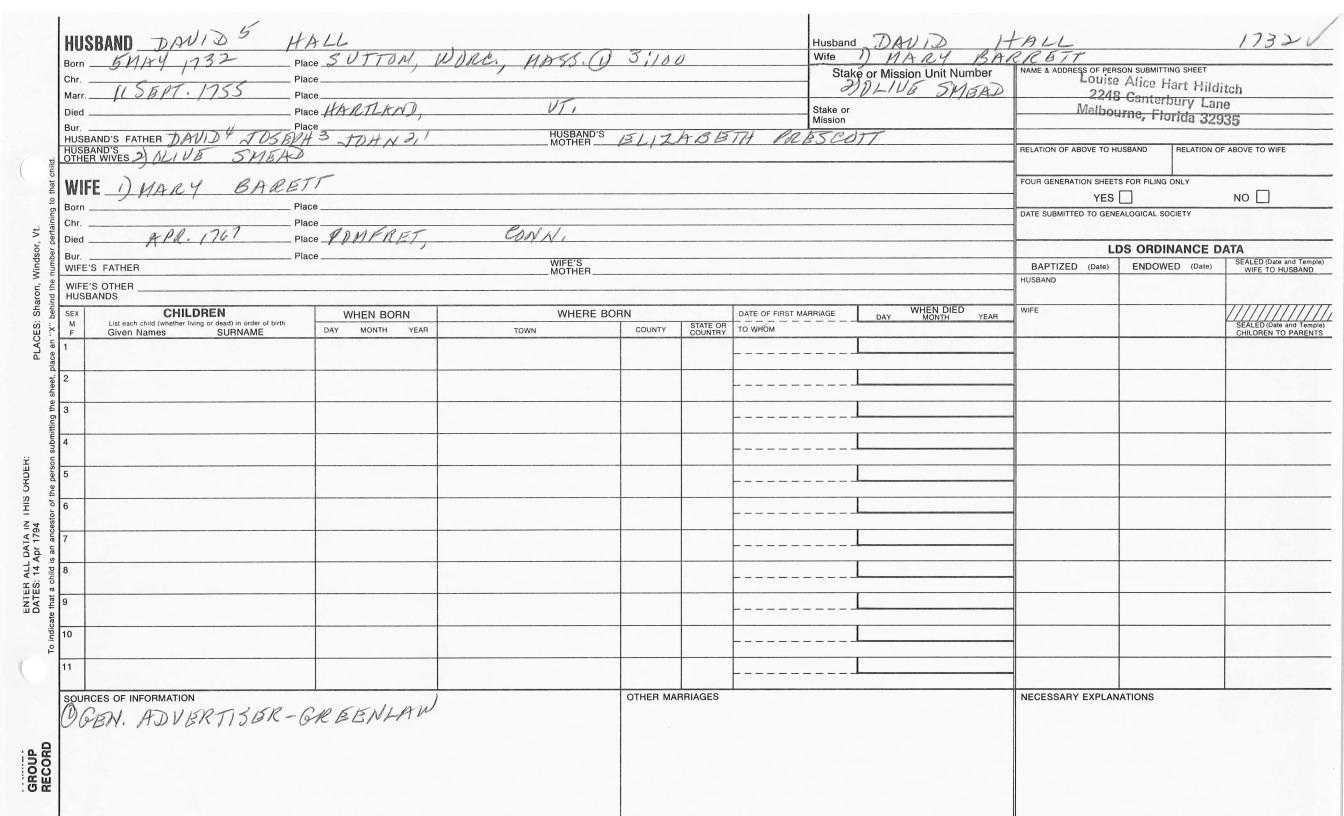 HUSBAND DAVID 5 HALL
Born 5 MAY 1732 Place SUTTON, WORC., MASS. ① 3:100
Chr. Place
Marr. 11 SEPT. 1755 Place
Died Place HARTLAND, VT.
Bur. Place
HUSBAND'S FATHER DAVID 4 JOSEPH 3 JOHN 2,1 HUSBAND'S MOTHER ELIZABETH PRESCOTT
HUSBAND'S OTHER WIVES 2) OLIVE SMEAD
Husband DAVID HALL 1732 ✓
Wife 1) MARY BARRETT
Stake or Mission Unit Number
2) OLIVE SMEAD
Stake or
Mission
NAME & ADDRESS OF PERSON SUBMITTING SHEET
Louise Alice Hart Hilditch
2248 Canterbury Lane
Melbourne, Florida 32935
RELATION OF ABOVE TO HUSBAND RELATION OF ABOVE TO WIFE
FOUR GENERATION SHEETS FOR FILING ONLY
YES NO
DATE SUBMITTED TO GENEALOGICAL SOCIETY
WIFE 1) MARY BARETT
Born Place
Chr. Place
Died APR. 1767 Place POMFRET, CONN.
Bur. Place
WIFE'S FATHER WIFE'S MOTHER
WIFE'S OTHER
HUSBANDS
LDS ORDINANCE DATA
BAPTIZED (Date) ENDOWED (Date) SEALED (Date and Temple) WIFE TO HUSBAND
HUSBAND
WIFE
SEALED (Date and Temple)
CHILDREN TO PARENTS
SEX
M
F
CHILDREN
List each child (whether living or dead) in order of birth
Given Names SURNAME
WHEN BORN
DAY MONTH YEAR
WHERE BORN
TOWN COUNTY STATE OR COUNTRY
DATE OF FIRST MARRIAGE
TO WHOM
WHEN DIED
DAY MONTH YEAR
1
2
3
4
5
6
7
8
9
10
11
SOURCES OF INFORMATION
① GEN. ADVERTISER-GREENLAW
OTHER MARRIAGES
NECESSARY EXPLANATIONS
PLACES: Sharon, Windsor, Vt.
To indicate that a child is an ancestor of the person submitting the sheet, place an "X" behind the number pertaining to that child.
ENTER ALL DATA IN THIS ORDER:
DATES: 14 Apr 1794
GROUP
RECORD